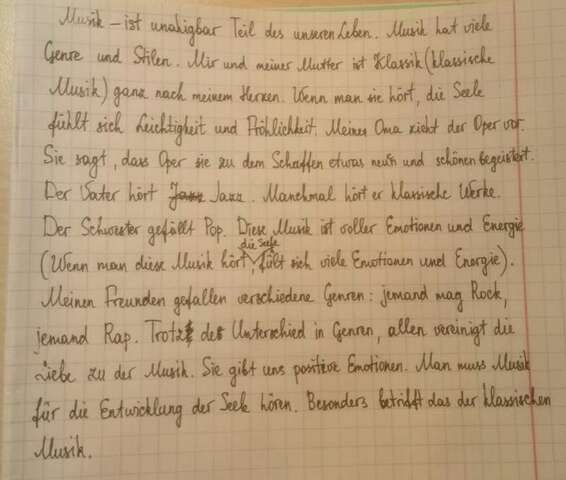 Musik – ist unahigbar Teil des unseren Leben. Musik hat viele
Genre und Stilen. Mir und meiner Mutter ist Klassik (klassische
Musik) ganz nach meinem Herzen. Wenn man sie hört, die Seele
fühlt sich Leichtigkeit und Fröhlichkeit. Meiner Oma zieht der Oper vor.
Sie sagt, dass Oper sie zu dem Schaffen etwas neu'n und schönen begeistert.
Der Vater hört Jazz Jazz. Manchmal hört er klassische Werke.
Der Schwester gefällt Pop. Diese Musik ist voller Emotionen und Energie
die Seele
(Wenn man diese Musik hört fült sich viele Emotionen und Energie).
Meinen Freunden gefallen verschiedene Genren: jemand mag Rock,
jemand Rap. Trotz des Unterschied in Genren, allen vereinigt die
Liebe zu der Musik. Sie gibt uns positive Emotionen. Man muss Musik
für die Entwicklung der Seele hören. Besonders betrifft das der klassischen
Musik.